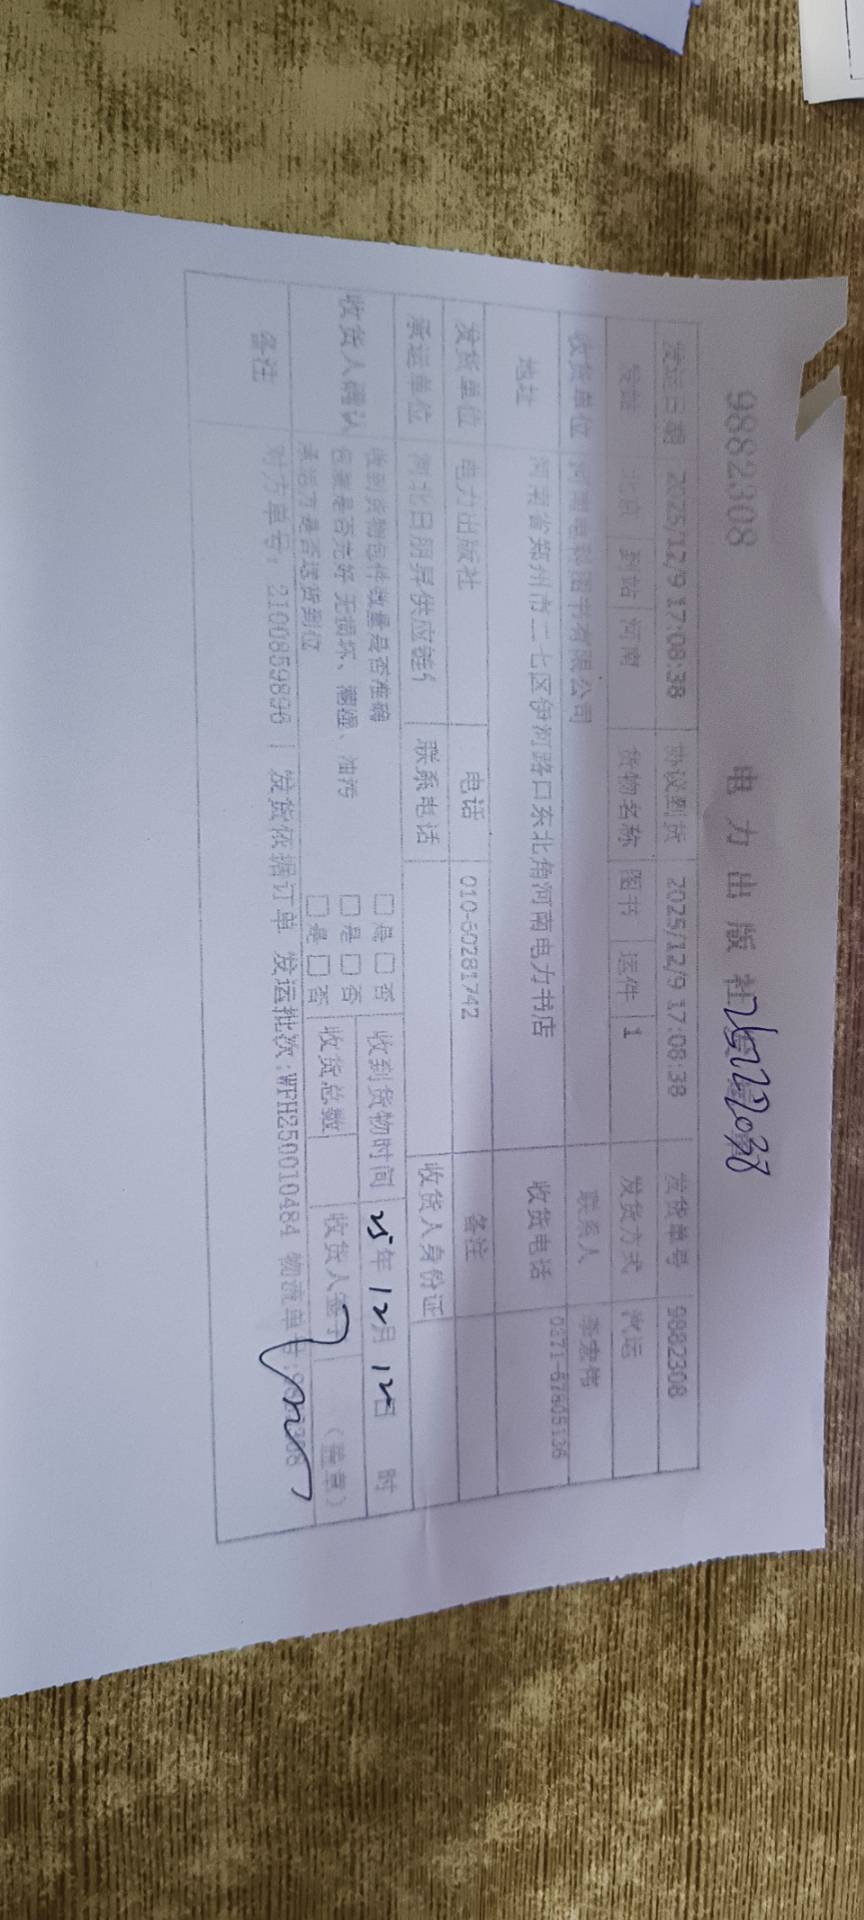 9882308 电力出版社
发运日期 2025/12/9 17:08:38 协议到货 2025/12/9 17:08:38 发货单号 9882308
发站 北京 到站 河南 货物名称 图书 运件 1 发货方式 汽运
收货单位 河南电科图书有限公司 联系人 李宏伟
地址 河南省郑州市二七区伊河路口东北角河南电力书店 收货电话
发货单位 电力出版社 电话 010-50281742 备注
承运单位 河北日朋昇供应链 联系电话 收货人身份证
收货人确认 收到货物包件数量是否准确 □是 □否 收到货物时间 25年12月12日 时
包装是否完好 无损坏、潮湿、油污 □是 □否 收货总数 收货人签字 (盖章)
承运方是否送货到位 □是 □否
备注 对方单号: 2100859896 | 发货依据订单 发运批次:WFH250010484 物流单号: